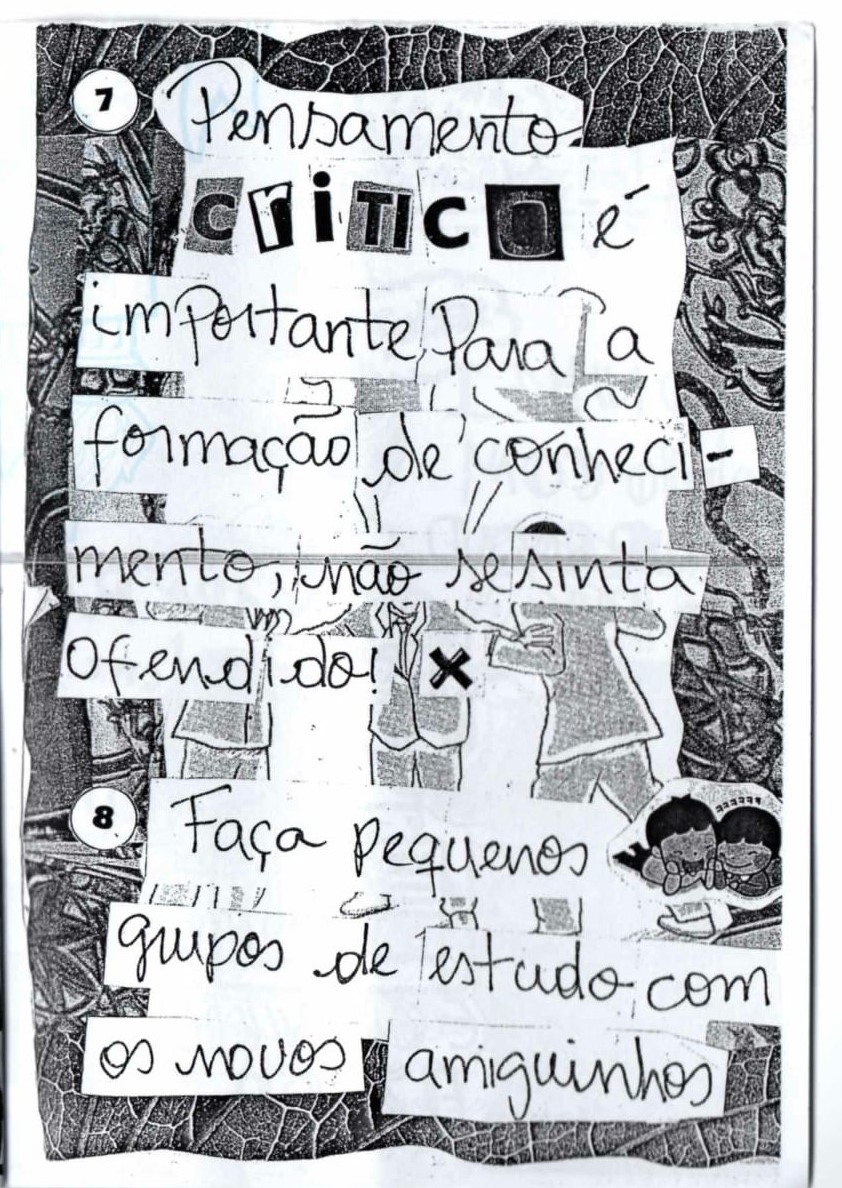 7
Pensamento
CRiTICO é
importante Para a
formação de conheci-
mento, não se sinta
ofendido!
8
Faça pequenos
grupos de estudo com
os novos amiguinhos